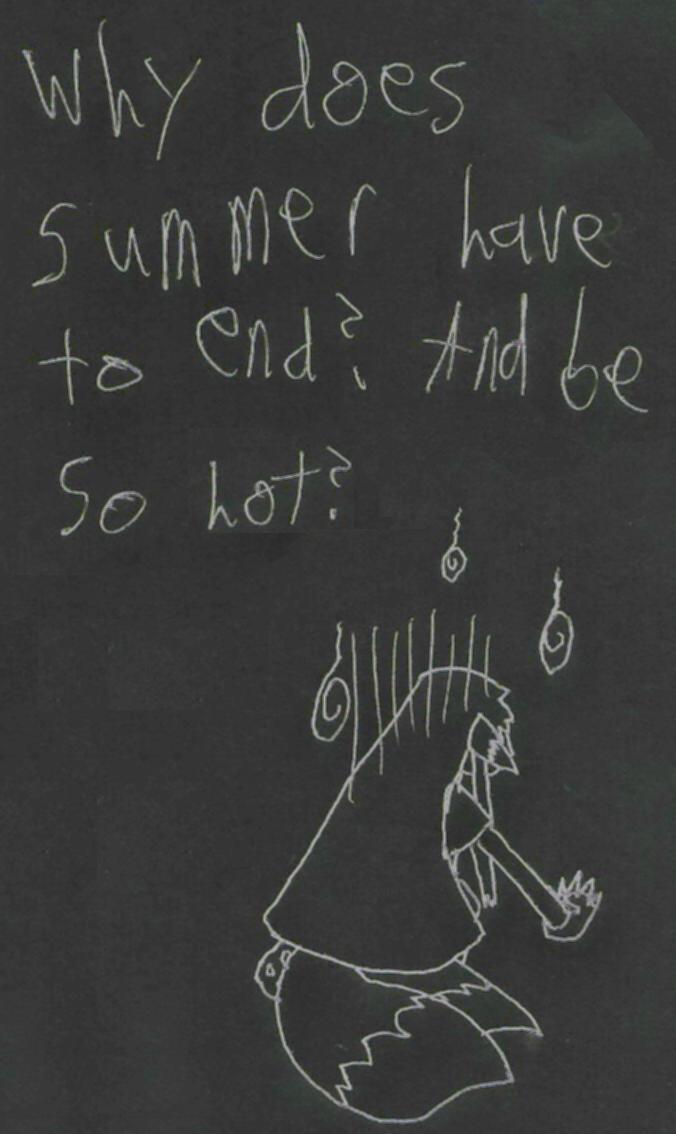 Why does
summer have
to end? And be
so hot?